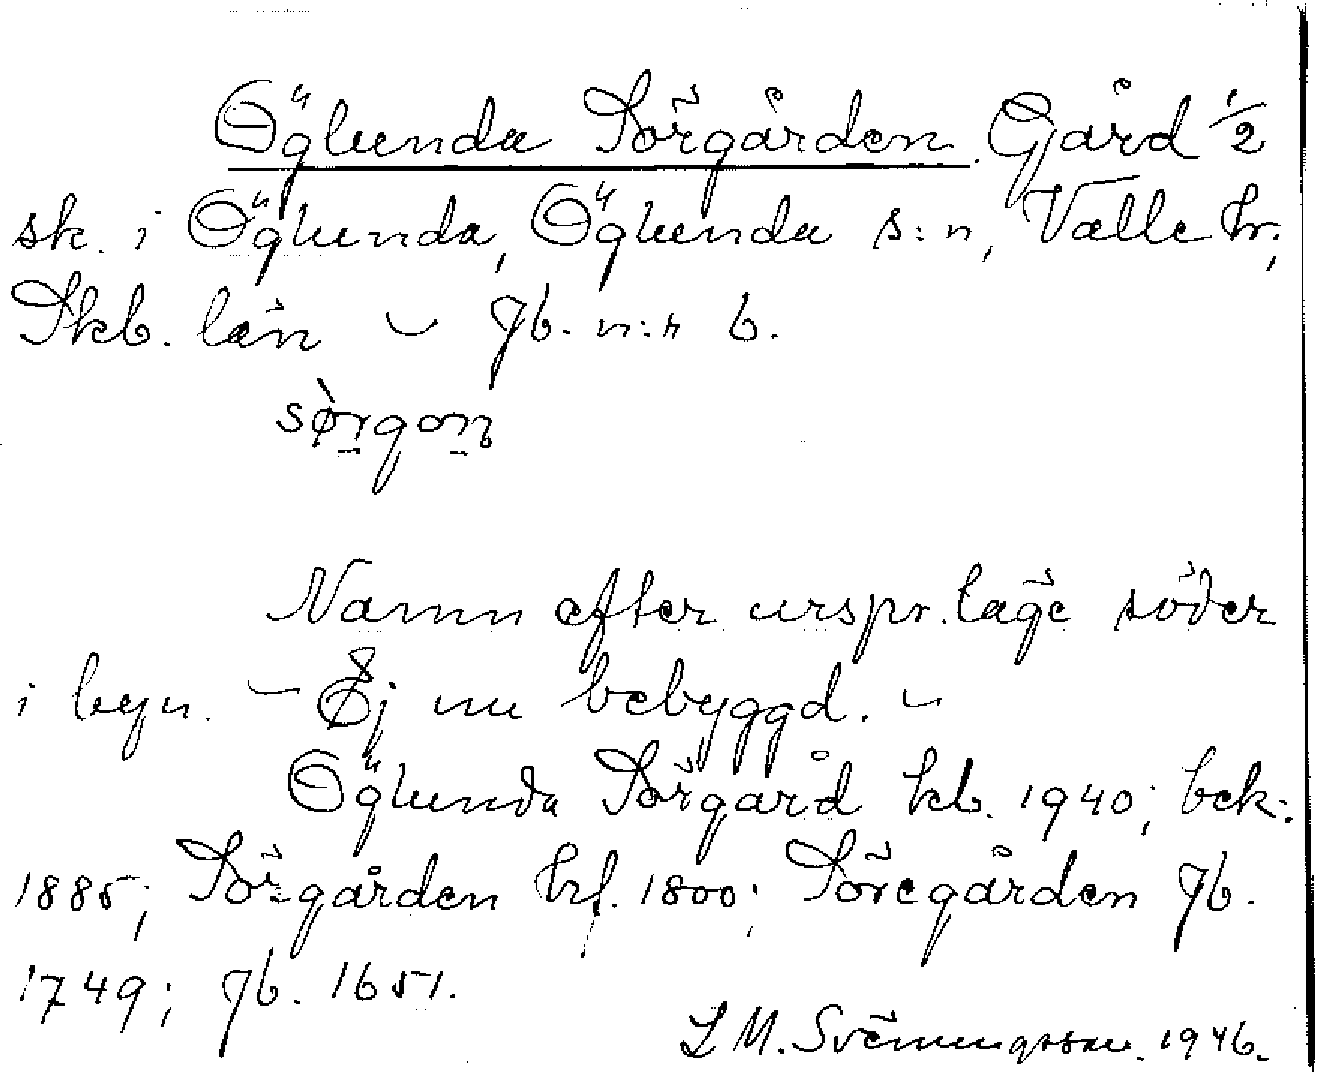 Öglunda Sörgården. Gård 1/2
sk. i Öglunda, Öglunda s:n, Valle hr;
Skb. län – Jb. n:r 6.
sørgon
Namn efter urspr. läge söder
i byn. – Ej nu bebyggd. –
Öglunda Sörgård kb. 1940; bek:
1885; Sörgården hf. 1800; Söregården Jb.
1749; Jb. 1651.
L M. Svenungsson. 1946.